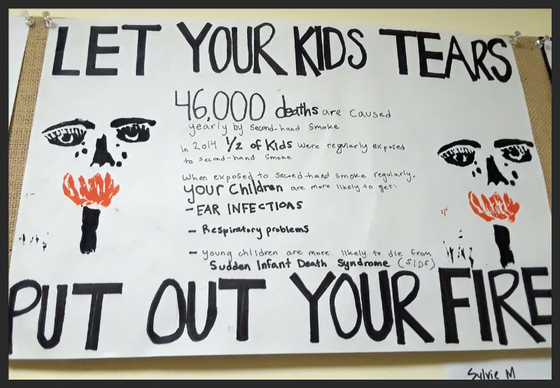 LET YOUR KIDS TEARS
46,000 deaths are caused
yearly by second-hand smoke
In 2014 1/2 of Kids were regularly exposed
to second-hand smoke
When exposed to second-hand smoke regularly,
your children are more likely to get:
- EAR INFECTIONS
- Respiratory problems
- young children are more likely to die from
Sudden Infant Death Syndrome (SIDS)
PUT OUT YOUR FIRE
Sylvie M